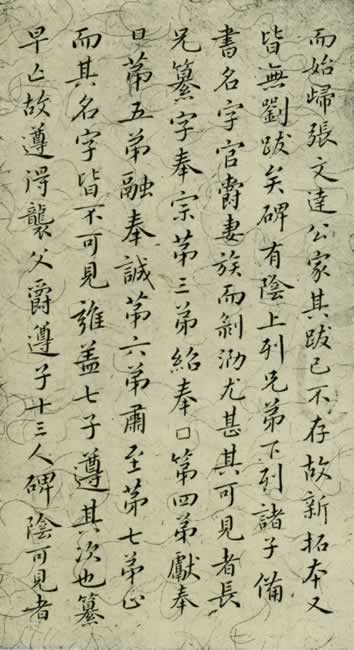 而始歸張文達公家其跋已不存故新拓本又
皆無劉跋矣碑有陰上列兄弟下列諸子備
書名字官爵妻族而剝泐尤甚其可見者長
兄纂字奉宗第三弟紹奉口第四弟獻奉
日第五弟融奉誠第六弟肅至第七弟止
而其名字皆不可見雍盖七子遵其次也纂
早亡故遵得襲父爵遵子十三人碑陰可見者